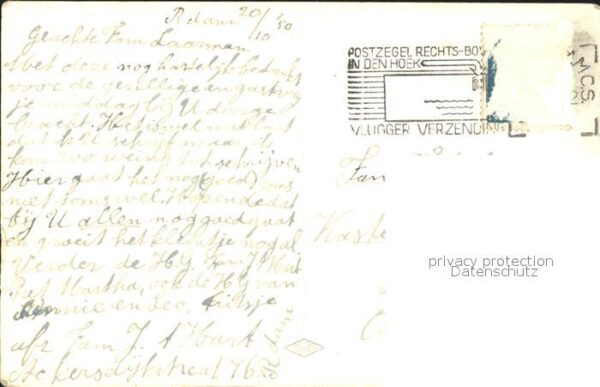 Rdam 20/10 '50
Geachte Fam Laarman
Met deze nog hartelijk bedankt
voor de gezellige en gastvrije
middag bij U doorge
bracht. Het is wel wat laat
dat ik U schrijf maar ik
kom zoo weinig tot schrijven
Hier gaat het nog (goed)
niet soms wel. Hopende dat
bij U allen nog goed gaat
en groeit het kleintje nog al
Verder de H.G. Fam J 't Hart
Martha, ook de H.G. van
en Leo, Fritsje
afz Fam J. 't Hart
Ackersdijkstraat 76
Rdam
POSTZEGEL RECHTS-BOV
IN DEN HOEK
VLUGGER VERZENDING
Fam
Kaste
privacy protection
Datenschutz